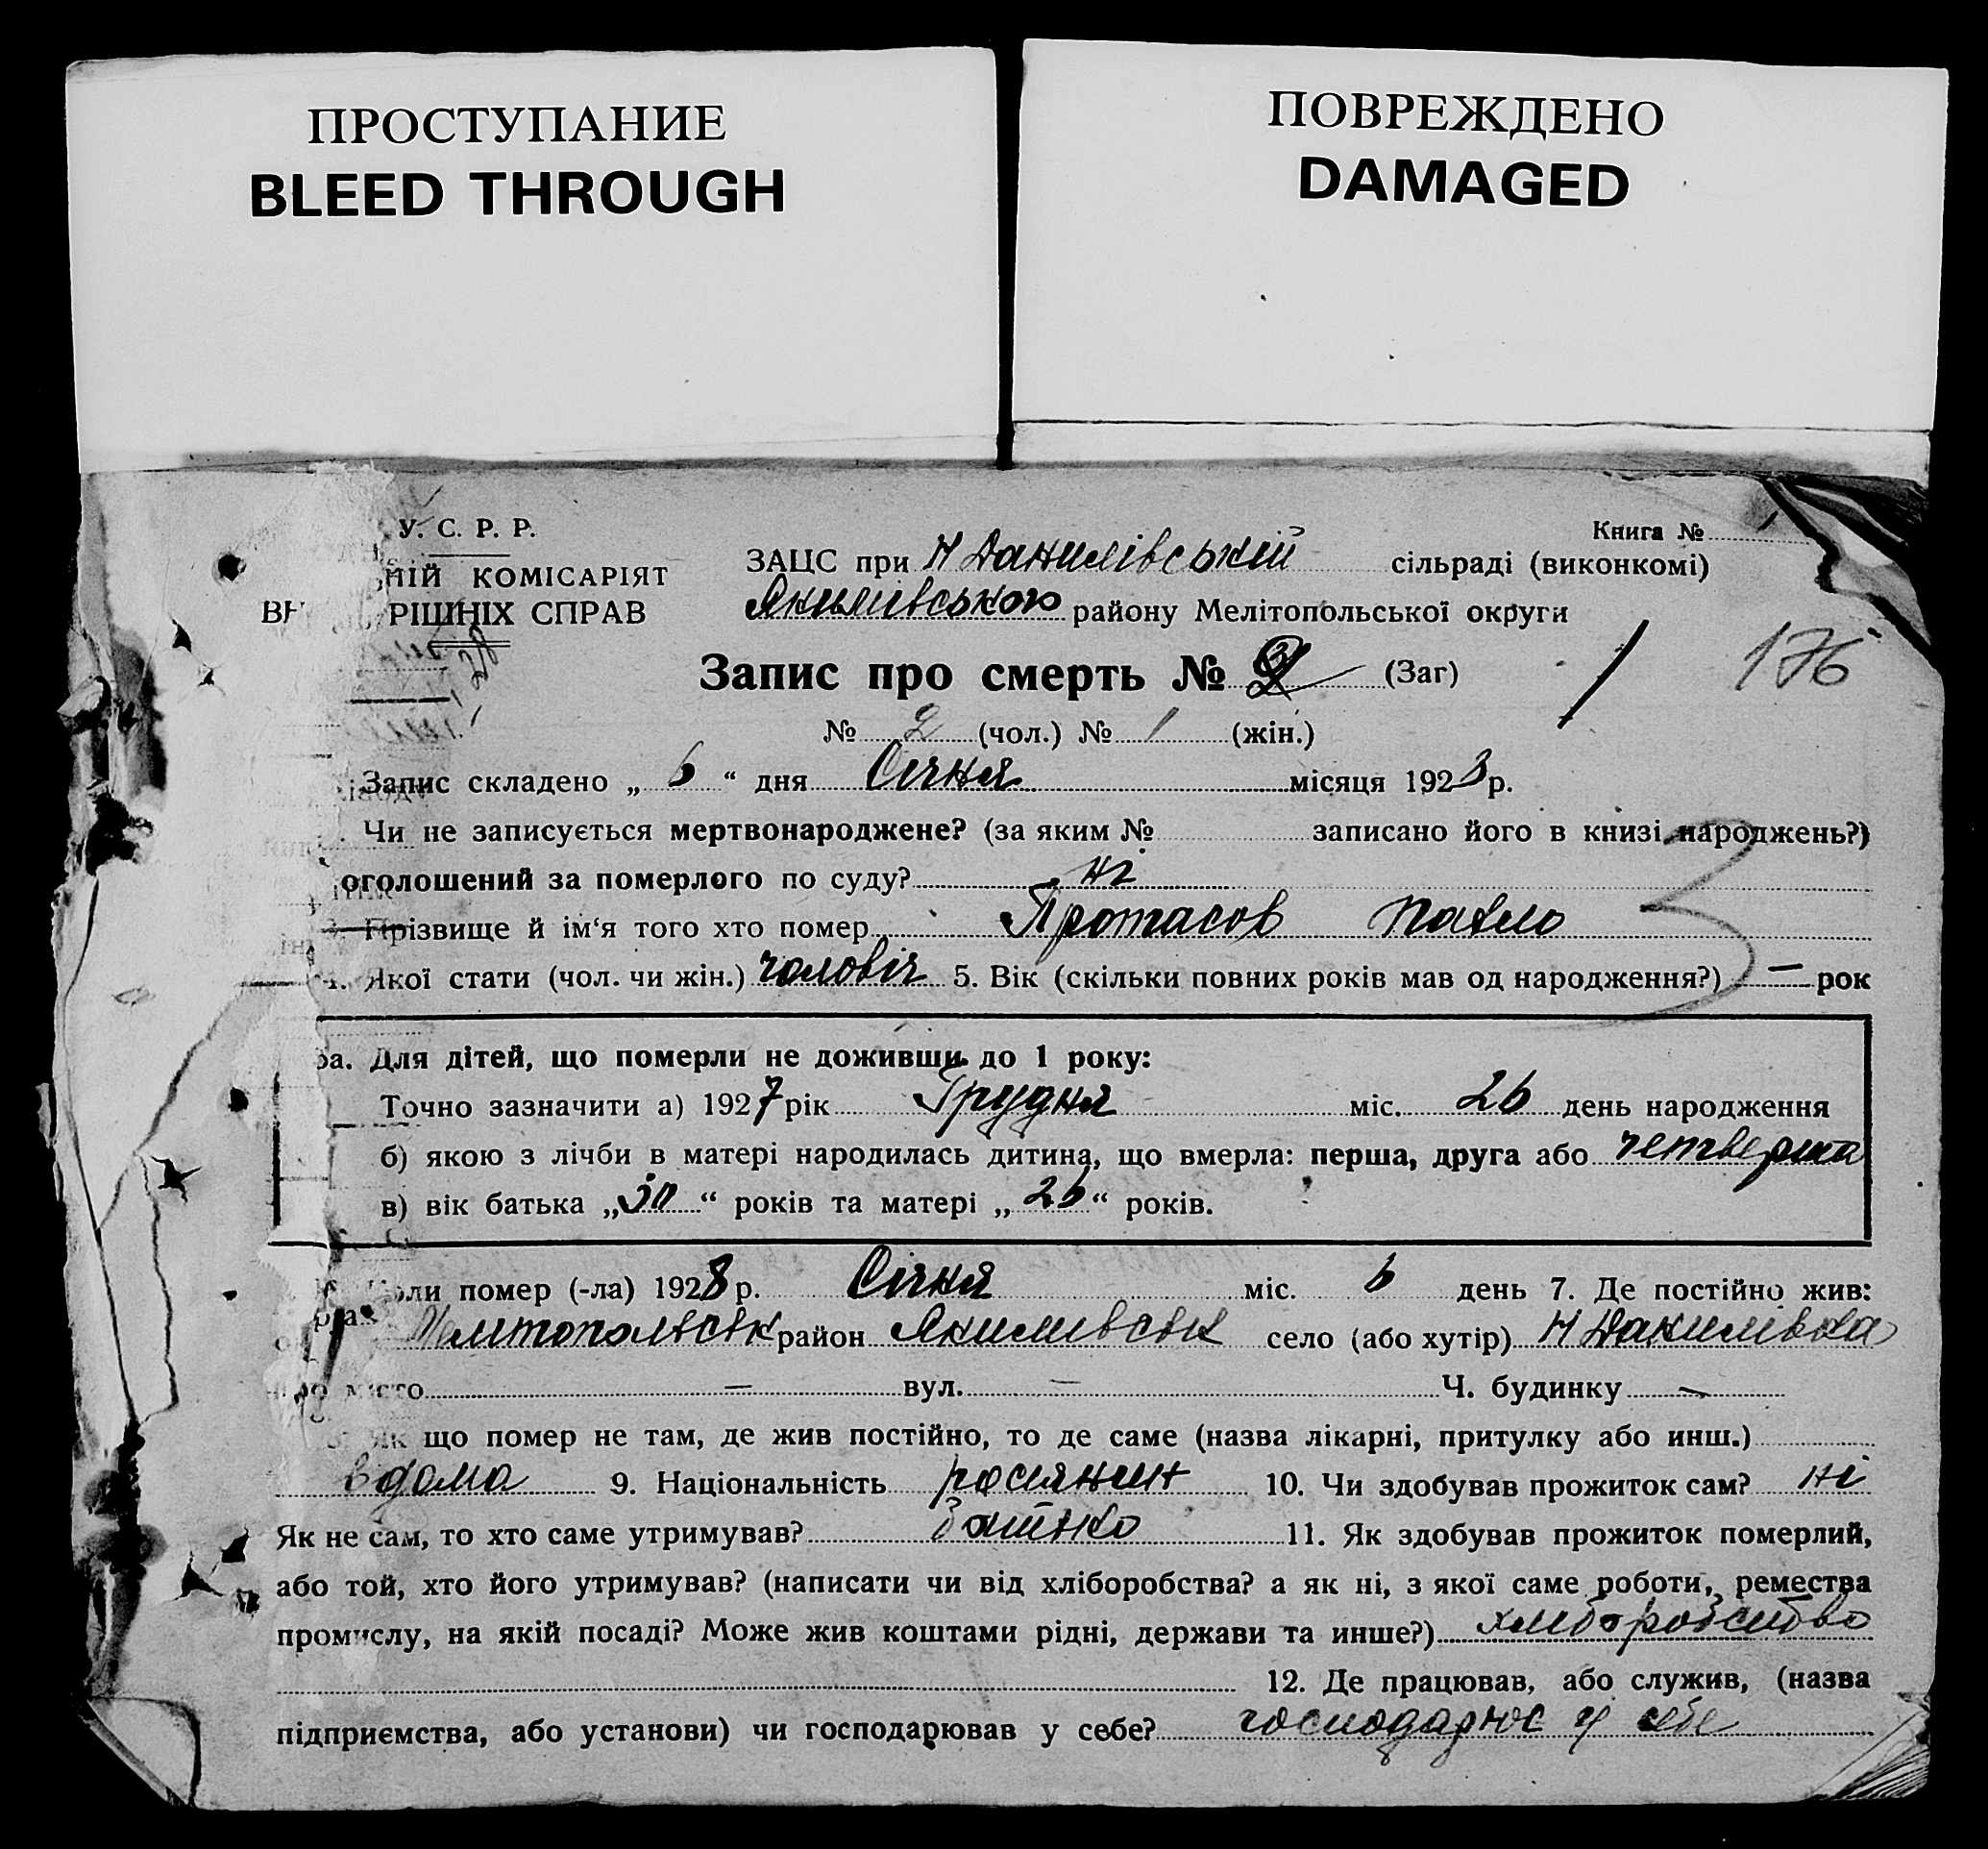 ПРОСТУПАНИЕ
BLEED THROUGH
ПОВРЕЖДЕНО
DAMAGED
У. С. Р. Р.
НІЙ КОМІСАРІЯТ
ВН РІШНІХ СПРАВ
Книга №
ЗАЦС при Н Данилівській сільраді (виконкомі)
Якимівського району Мелітопольської округи
Запис про смерть № 2 (Заг)
176
№ 2 (чол.) № 1 (жін.)
Запис складено „ 6 “ дня Січня місяця 1928 р.
Чи не записується мертвонароджене? (за яким № записано його в книзі народжень?)
оголошений за померлого по суду? ні
3
Прізвище й ім‘я того хто помер Протасов Павло
4. Якої стати (чол. чи жін.) чоловіч 5. Вік (скільки повних років мав од народження?) — рок
5а. Для дітей, що померли не доживши до 1 року:
Точно зазначити а) 1927 рік Грудня міс. 26 день народження
б) якою з лічби в матері народилась дитина, що вмерла: перша, друга або четверта
в) вік батька „30“ років та матері „26“ років.
Коли помер (-ла) 1928 р. Січня міс. 6 день 7. Де постійно жив:
Мелітопольськ район Якимівськ село (або хутір) Н Данилівка
місто — вул. — Ч. будинку —
Як що помер не там, де жив постійно, то де саме (назва лікарні, притулку або инш.)
вдома 9. Національність росіянин 10. Чи здобував прожиток сам? ні
Як не сам, то хто саме утримував? батько 11. Як здобував прожиток померлий,
або той, хто його утримував? (написати чи від хліборобства? а як ні, з якої саме роботи, ремества
промислу, на якій посаді? Може жив коштами рідні, держави та инше?) хліборобство
12. Де працював, або служив, (назва
підприємства, або установи) чи господарював у себе? господарює у себе